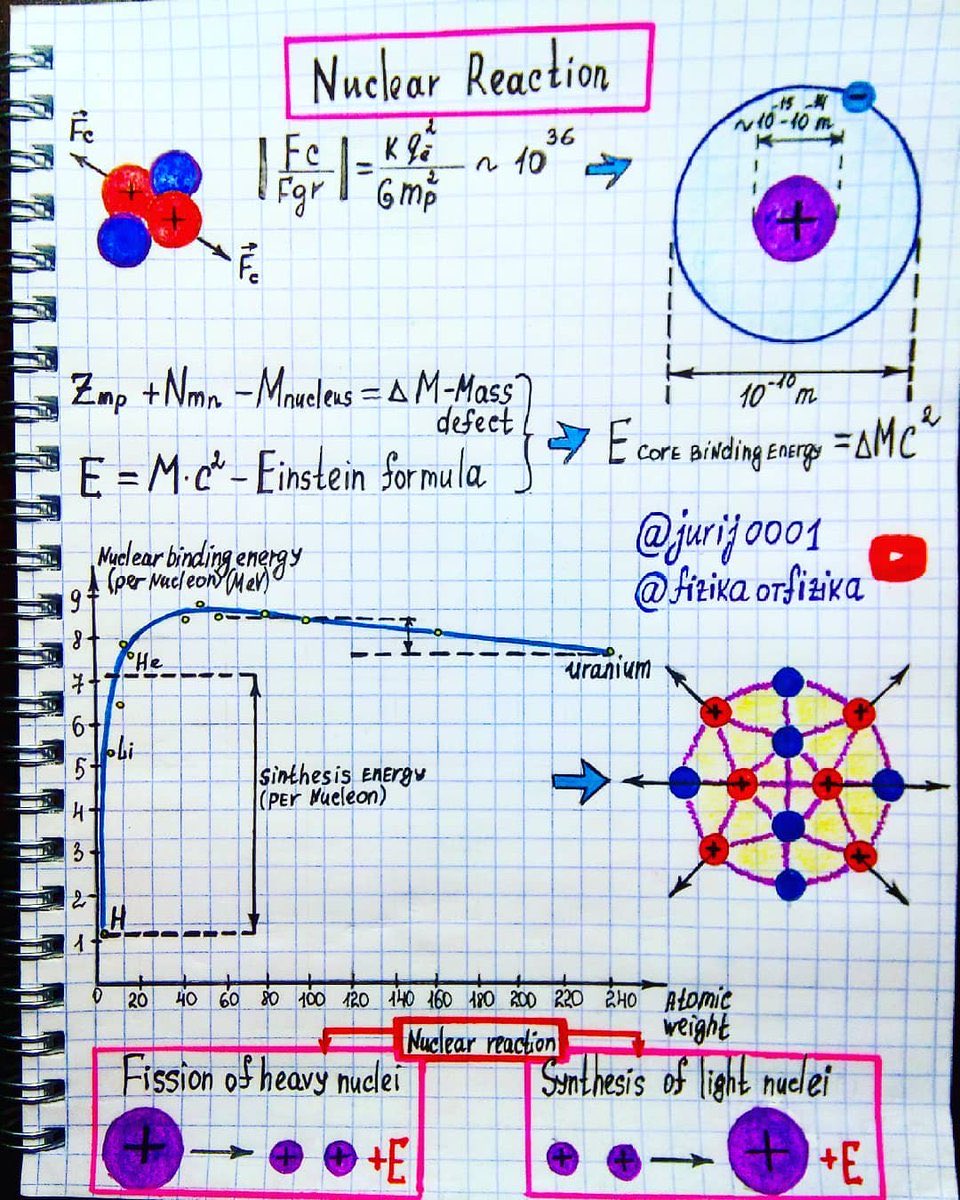 Nuclear Reaction
F⃗c
F⃗c
|Fc/Fgr| = Kq²ē/Gmp² ~ 10³⁶
~10⁻¹⁵-10⁻¹⁴ m
−
+
+
+
10⁻¹⁰ m
Zmp + Nmn − Mnucleus = ΔM - Mass
defect
E = M·c² - Einstein formula
E CORE BiNDiNg ENERgy = ΔMc²
@jurij0001
@fizika oтfizika
Nuclear binding energy
(per Nucleon) (MeV)
9
8
7
6
5
4
3
2
1
He
Li
H
uranium
Sinthesis ENERgy
(PER Nucleon)
+
+
+
+
+
+
0 20 40 60 80 100 120 140 160 180 200 220 240
Atomic
weight
Nuclear reaction
Fission of heavy nuclei
+ + + +E
Synthesis of light nuclei
+ + + +E